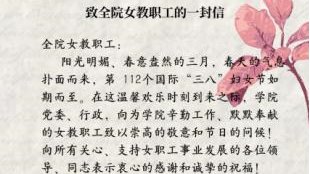 致全院女教职工的一封信
全院女教职工：
阳光明媚、春意盎然的三月，春天的气息
扑面而来，第 112个国际“三八”妇女节如
期而至。在这温馨欢乐时刻到来之际，学院
党委、行政，向为学院辛勤工作、默默奉献
的女教职工致以崇高的敬意和节日的问候！
向所有关心、支持女职工事业发展的各位领
导、同志表示衷心的感谢和诚挚的祝福！